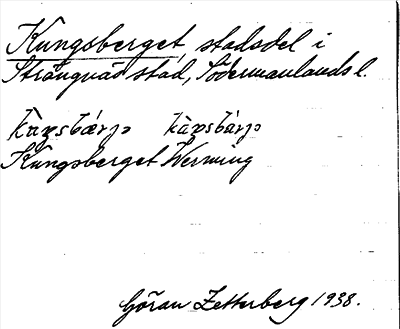 Kungsberget, stadsdel i
Strängnäs stad, Södermanlands l.
Kungsberget Werming
Göran Zetterberg 1938.